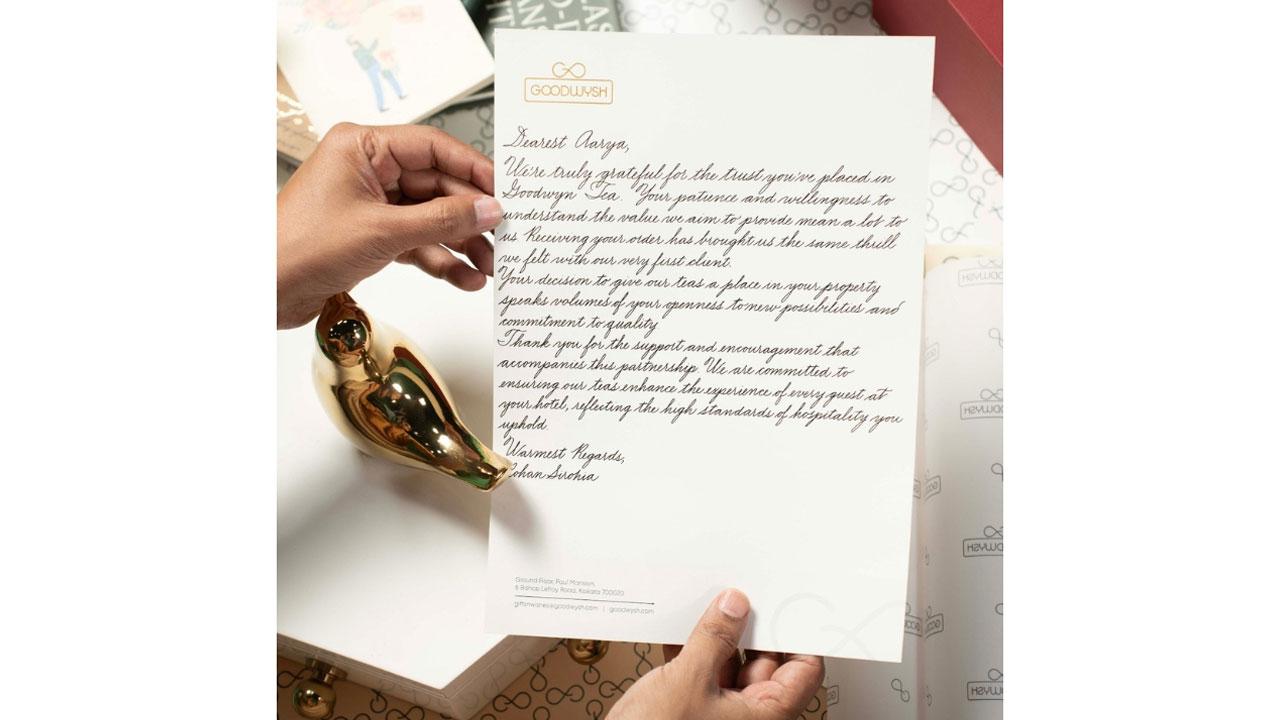 GOODWYSH
Dearest Aarya,
We're truly grateful for the trust you've placed in
Goodwyn Tea. Your patience and willingness to
understand the value we aim to provide mean a lot to
us. Receiving your order has brought us the same thrill
we felt with our very first client.
Your decision to give our teas a place in your property
speaks volumes of your openness to new possibilities and
commitment to quality
Thank you for the support and encouragement that
accompanies this partnership. We are committed to
ensuring our teas enhance the experience of every guest at
your hotel, reflecting the high standards of hospitality you
uphold.
Warmest Regards,
Rohan Sirohia
Ground Floor, Paul Mansion,
6 Bishop Lefroy Road, Kolkata 700020
goodwysh.com
GOODWYSH
GOODWYSH
GOODWYSH
GOODWYSH